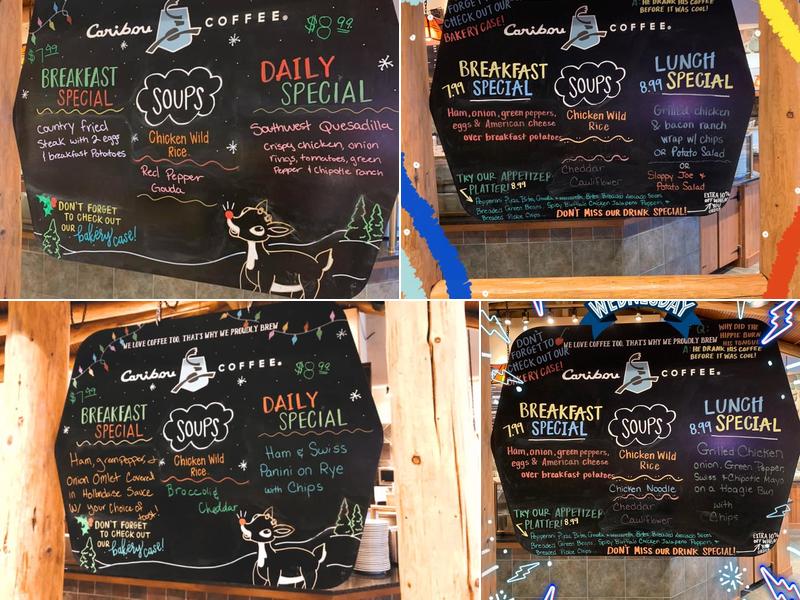 Caribou COFFEE®
$7.99
$8.99
BREAKFAST
SPECIAL
Country fried
Steak with 2 eggs
& breakfast Potatoes
SOUPS
Chicken Wild
Rice
Red Pepper
Gouda
DAILY
SPECIAL
Southwest Quesadilla
Crispy chicken, onion
rings, tomatoes, green
Pepper & Chipotle ranch
DON'T FORGET
TO CHECK OUT
OUR bakery case!
FORGET
CHECK OUT OUR
BAKERY CASE!
A: HE DRANK HIS COFFEE
BEFORE IT WAS COOL!
Caribou COFFEE®
BREAKFAST
7.99 SPECIAL
Ham, onion, green peppers,
eggs & American cheese
over breakfast potatoes
SOUPS
Chicken Wild
Rice
Cheddar
Cauliflower
LUNCH
8.99 SPECIAL
Grilled chicken
& bacon ranch
wrap w/ chips
OR Potato Salad
OR
Sloppy Joe &
Potato Salad
TRY OUR APPETIZER
PLATTER! 8.99
Pepperoni Pizza Bites, Bites, Breaded Avocado
Breaded Green Beans, Spicy Buffalo Chicken Jalapeno Poppers, &
Breaded Pickle Chips
DON'T MISS OUR DRINK SPECIAL!
EXTRA 10%
OFF
WE LOVE COFFEE TOO, THAT'S WHY WE PROUDLY BREW
Caribou COFFEE®
$7.99
$8.99
BREAKFAST
SPECIAL
Ham, green pepper, &
Onion Omlet Covered
in Hollandaise Sauce
w/ your choice of
toast
SOUPS
Chicken Wild
Rice
Broccoli &
Cheddar
DAILY
SPECIAL
Ham & Swiss
Panini on Rye
with Chips
DON'T FORGET
TO CHECK OUT
OUR bakery case!
WEDNESDAY
DON'T
FORGET TO
CHECK OUT OUR
BAKERY CASE!
WE LOVE COFFEE TOO, THAT'S WHY WE PROUDLY BREW
Q: WHY DID THE
HIPPIE BURN
HIS TONGUE
A: HE DRANK HIS COFFEE
BEFORE IT WAS COOL!
Caribou COFFEE®
BREAKFAST
7.99 SPECIAL
Ham, onion, green peppers,
eggs & American cheese
over breakfast potatoes
SOUPS
Chicken Wild
Rice
Chicken Noodle
Cheddar
Cauliflower
LUNCH
8.99 SPECIAL
Grilled Chicken
onion, Green Pepper,
Swiss & Chipotle Mayo
on a Hoagie Bun
with
Chips
TRY OUR APPETIZER
PLATTER! 8.99
Pepperoni Pizza Bites, Bites, Breaded Avocado
Breaded Green Beans, Spicy Buffalo Chicken Jalapeno Poppers, &
Breaded Pickle Chips
DON'T MISS OUR DRINK SPECIAL!
EXTRA 10%
OFF